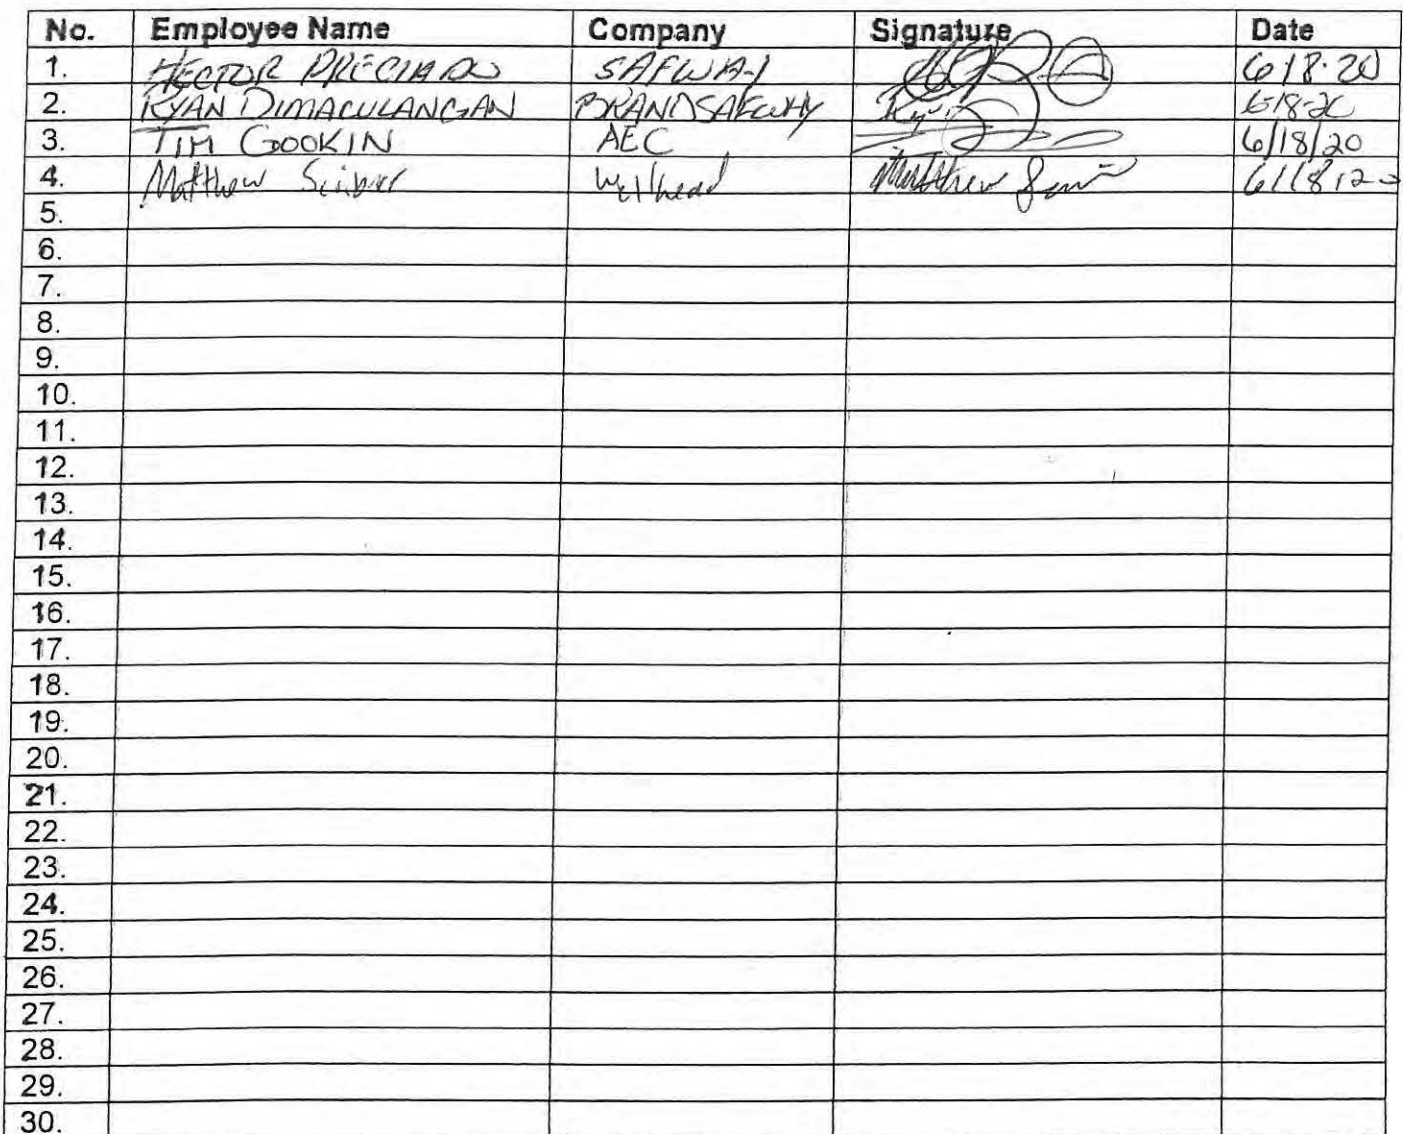 No. Employee Name Company Signature Date
1. HECTOR PRECIADO SAFWAY 6-18-20
2. RYAN DIMACULANGAN BRANDSAFWAY Ryan 6-18-20
3. TIM GOOKIN AEC 6/18/20
4. Matthew Wellhead Matthew 6/18/20
5.
6.
7.
8.
9.
10.
11.
12.
13.
14.
15.
16.
17.
18.
19.
20.
21.
22.
23.
24.
25.
26.
27.
28.
29.
30.